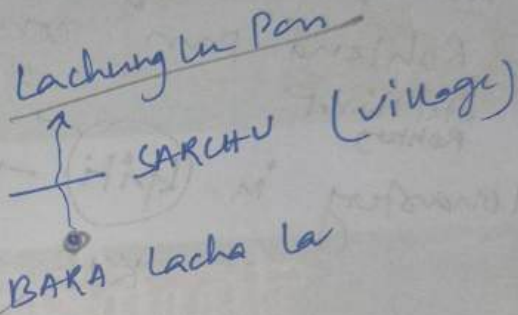 Lachung La Pass
SARCHU (village)
BARA Lacha La